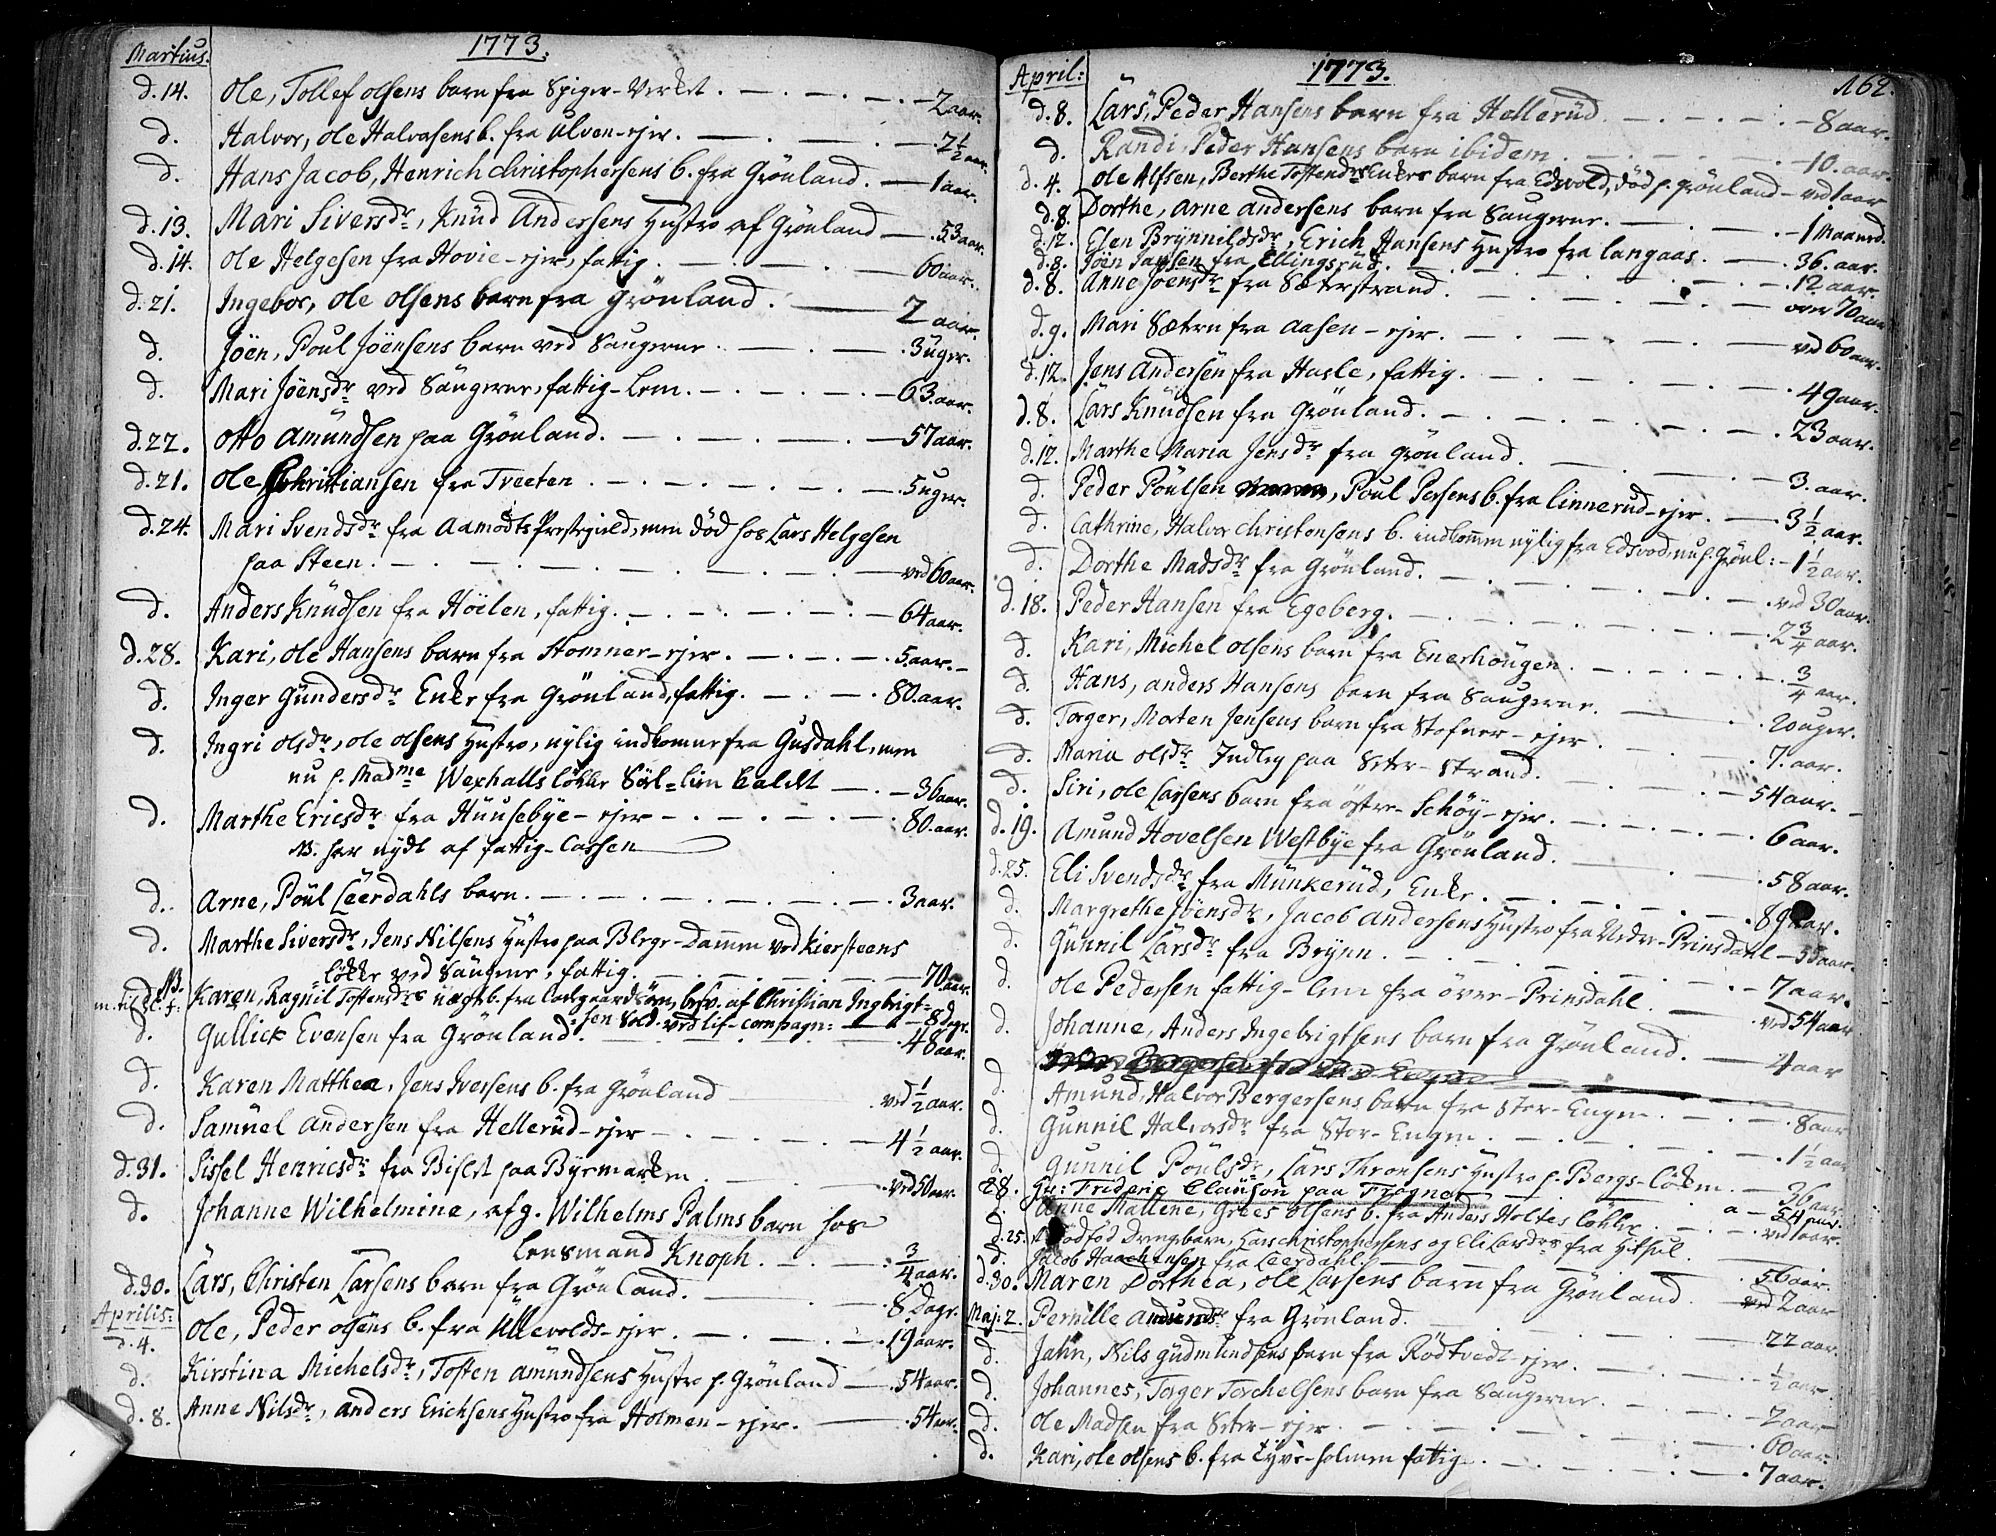 Martius. 1773.
d. 14. Ole, Tollef olsens barn fra Spiger-Verket. 2 aar.
d. Halvor, Ole Halvorsens b. fra Ulven-ejer. 2 1/2 aar.
d. Hans Jacob, Henrich Christophersens b. fra Grönland. 1 aar.
d. 13. Mari Siversdr., Knud Andersens Hustro af Grönland 53 aar.
d. 14. Ole Helgesen fra Hovie-ejer, fattig. 60 aar.
d. 21. Ingebor, Ole Olsens barn fra Grönland. 2 aar.
d. Jöen, Poul Jöensens barn ved Saugerne. 3 uger.
d. Mari Jöensdr. ved Saugerne, fattig-Lem. 63. aar.
d. 22. Otto Amundsen paa Grönland. 57 aar.
d. 21. Ole Christiansen fra Tveeten. 5 uger.
d. 24. Mari Svendsdr. fra Aamodts Prestegield, men död hos Lars Helgesen
paa Steen. ved 60 aar.
d. Anders Knudsen fra Höilen, fattig. 64 aar.
d. 28. Kari, Ole Hansens barn fra Stomner-ejer. 5 aar.
d. Inger Gundersdr. Enke fra Grönland, fattig. 80. aar.
d. Ingri Olsdr., Ole Olsens Hustro, nylig indkomne fra Gusdahl, men
nu p. Madme Wexhalls Lökke Sörl-lien kaldt 36 aar.
d. Marthe Ericsdr. fra Huusebye-ejer 80. aar.
NB. har nydt af fattig-Cassen
d. Arne, Poul Leerdahls barn. 3 aar.
d. Marthe Siversdr., Jens Nilsens Hustro paa Blege-Dammen ved Kiersteens
Lökke ved Saugene, fattig. 70 aar.
NB. Karen, Ragnil Tostensdrs uægte b. fra Ladegaardsöen, besv. af Christian Ingbrigt-
m. til Sl. f: sen Sold. ved lif-compagn: 8 Dage.
d. Gullick Evensen fra Grönland. 48 aar.
d. Karen Matthea, Jens Iversens b. fra Grönland ved 1/2 aar.
d. Samuel Andersen fra Hellerud-ejer 4 1/2 aar.
d. 31. Sissel Henricsdr. fra Bislet paa Byemarken ved 50 aar.
d. Johanne Wilhelmine, afg. Wilhelms Palms barn hos
Lensmand Knoph. 3/4 aar.
d. 30. Lars, Christen Larsens barn fra Grönland. 8 Dage.
Aprilis:
d. 4. Ole, Peder Olsens b. fra Ullevolds-ejer. 19 aar.
d. Kirstina Michelsdr., Tosten Amundsens Hustro p. Grönland 54 aar.
d. 8. Anne Nilsdr., Anders Erichsens Hustro fra Holmen-ejer. 54 aar.
April: 1773. 162.
d. 8. Lars, Peder Hansens barn fra Hellerud. 8 aar.
d. Randi, Peder Hansens barn ibidem. 10. aar.
d. 4. Ole Alfsen, Berthe Tostendrs Enkes barn fra Edsvold, död p. Grönland ved 1 aar
d. 8. Dorthe, Arne Andersens barn fra Saugerne. 1 Maaned.
d. 12. Elen Brynnildsdr., Erich Hansens Hustro fra Langaas. 36. aar.
d. 8. Jöen fra Ellingsrud. 12 aar.
d. 8. Anne Jöensdr. fra Sæterstrand. over 70 aar
d. 9. Mari Sætren fra Aasen-ejer. ved 60 aar.
d. 12. Jens Andersen fra Hasle, fattig. 49 aar.
d. 8. Lars Knudsen fra Grönland. 23 aar.
d. 12. Marthe Maria Jensdr. fra Grönland. 3. aar.
d. Peder Poulsen, Poul Persens b. fra Linnerud-ejer. 3 1/2 aar.
d. Cathrine, Halvor Christensens b. indkommen nylig fra Edsvod, nu p. Grönl: 1 1/2 aar.
d. Dorthe Madsdr. fra Grönland. ved 30 aar.
d. 18. Peder Hansen fra Egeberg. 2 3/4 aar.
d. Kari, Michel Olsens barn fra Enerhougen. 3/4 aar.
d. Hans, Anders Hansens barn fra Saugerne. 20 uger.
d. Torger, Morten Jensens barn fra Stofner-ejer. 7. aar.
d. Maria Olsdr. Indleg paa Seter-Strand. 54 aar.
d. Siri, Ole Larsens barn fra Östre-Schöy-ejer. 6 aar.
d. 19. Amund Hovelsen Westbye fra Grönland. 58 aar.
d. 25. Eli Svendsdr. fra Munkerud, Enke. 89 aar.
d. Margrethe Jöensdr., Jacob Andersens Hustro fra Nedre-Prinsdahl 55 aar.
d. Gunnil Larsdr. fra Brynn. 7 aar.
d. Ole Pedersen fattig-Lem fra Över-Prinsdahl. ved 54 aar
d. Johanne, Anders Ingebrigtsens barn fra Grönland. 4 aar
d. Amund, Halvor Bergersens barn fra Stor-Engen. 8 aar
d. Gunnil Halvorsdr. fra Stor-Engen. 1 1/2 aar
d. Gunnil Poulsdr., Lars Thronsens Hustro p. Bergs-Löken. 36 aar.
28. Hr: Frideric Clauson paa Frogner a 54 aar.
d. Anne Mallene, Grees Olsens b. fra Anders Holtes Lökke. ved 1 aar.
d. 25. Dödföd Drengebarn, Lars Christophersens og Eli Larsdrs fra
d. Jacob fra Leerdahl. 56 aar.
d. 30. Maren Dorthea, Ole Larsens barn fra Grönland ved 2 aar
Maj: 2. Pernille Amundsdr. fra Grönland. 22 aar.
d. Jahn, Nils Gudmundsens barn fra Rödtvedt-ejer. 1/2 aar.
d. Johannes, Torger Torchelsens barn fra Saugerne. 2 aar
d. Ole Madsen fra Seter-ejer 60 aar.
d. Kari, Ole Olsens b. fra Tyve-holmen fattig. 7 aar.